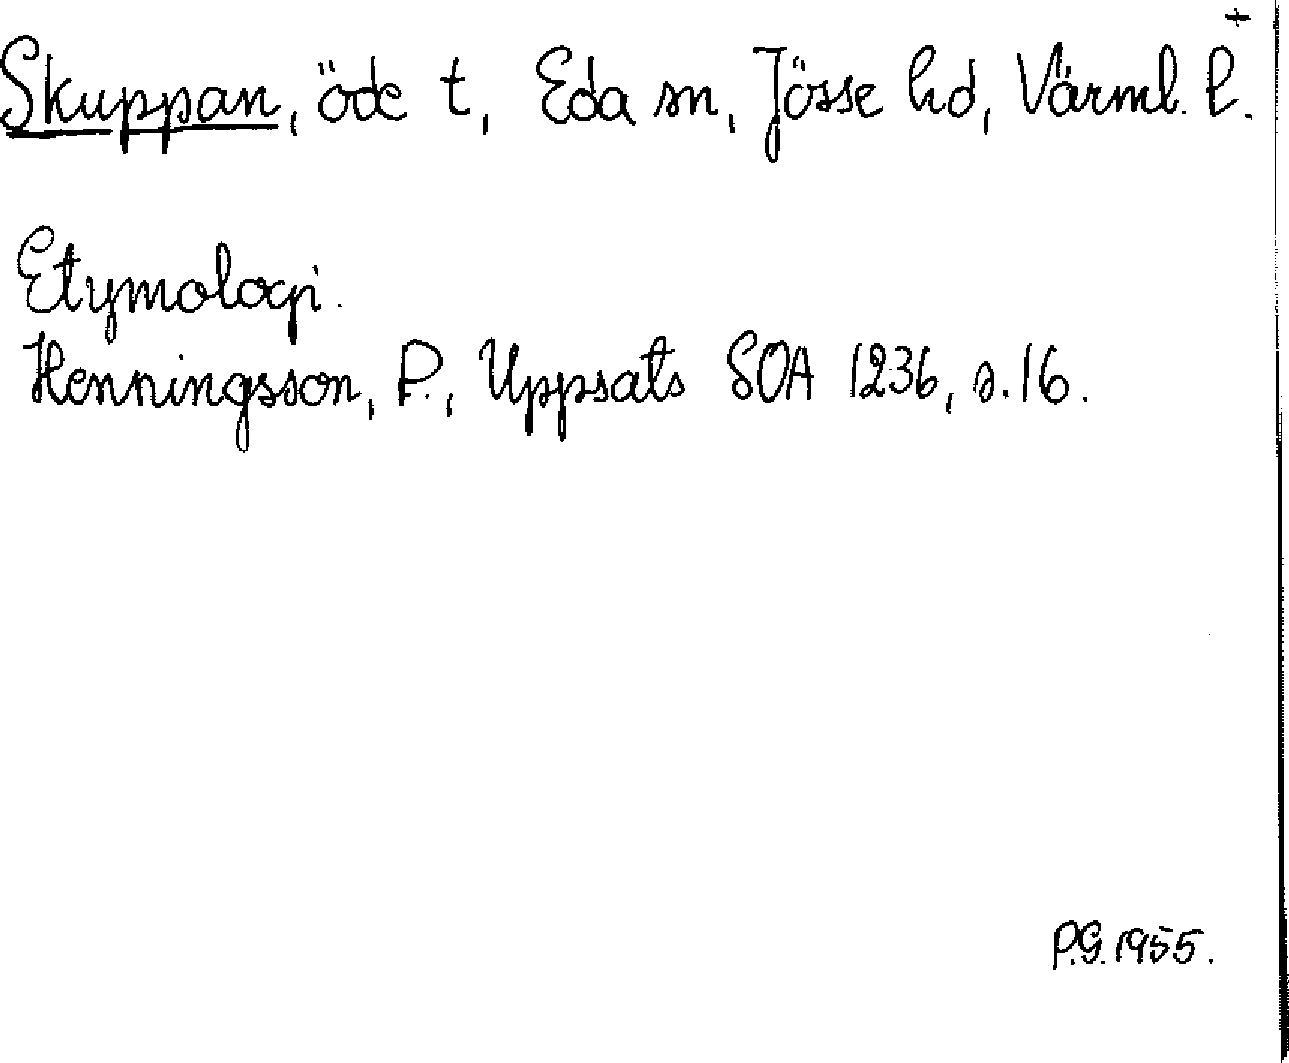 +
Skuppan, öde t, Eda sn, Jösse hd, Värml. l.
Etymologi.
Henningsson, P., Uppsats SOA 1236, s. 16.
P.G. 1955.